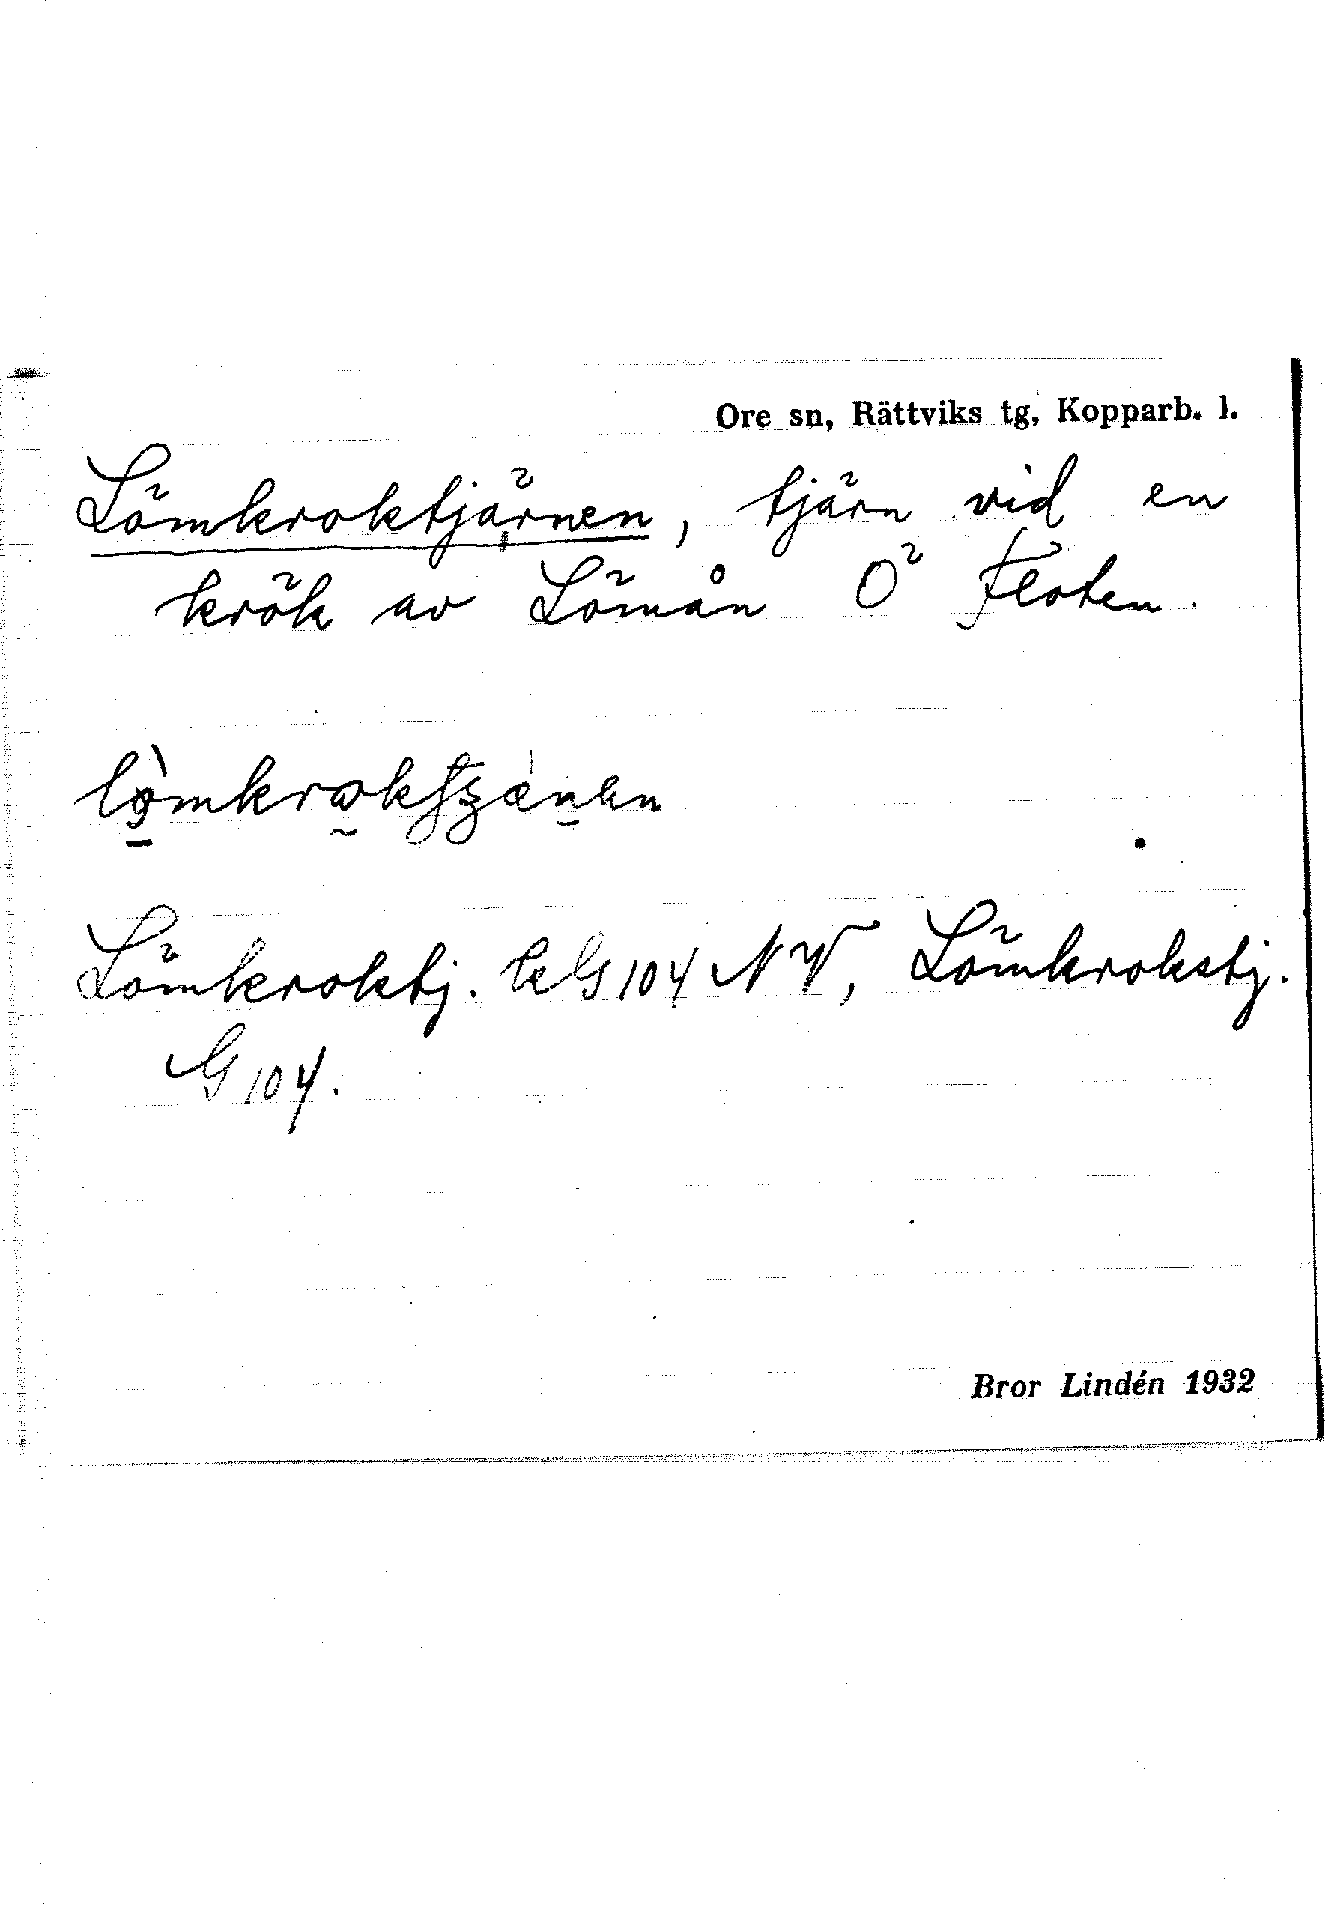 Ore sn, Rättviks tg, Kopparb. l.
Lömkroktjärnen, tjärn vid en
krök av Lömån Ö Floten.
Lömkroktj. kG104 NV, Lömkrokstj.
G104.
Bror Lindén 1932